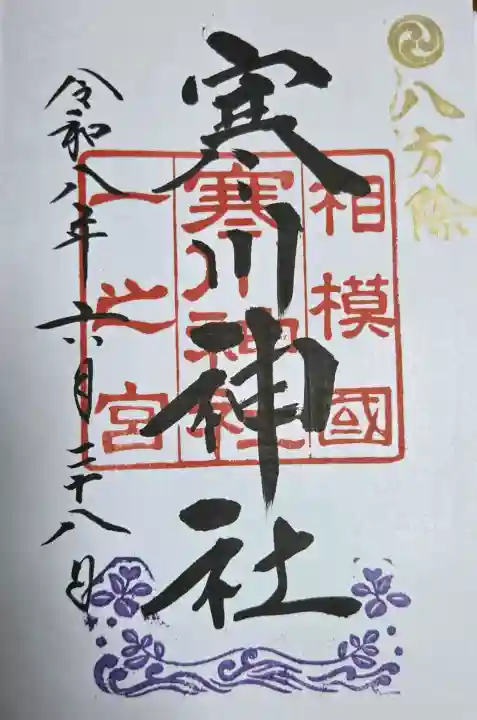 八方除
寒川神社
相模國
寒川神社
一之宮
令和八年六月二十八日